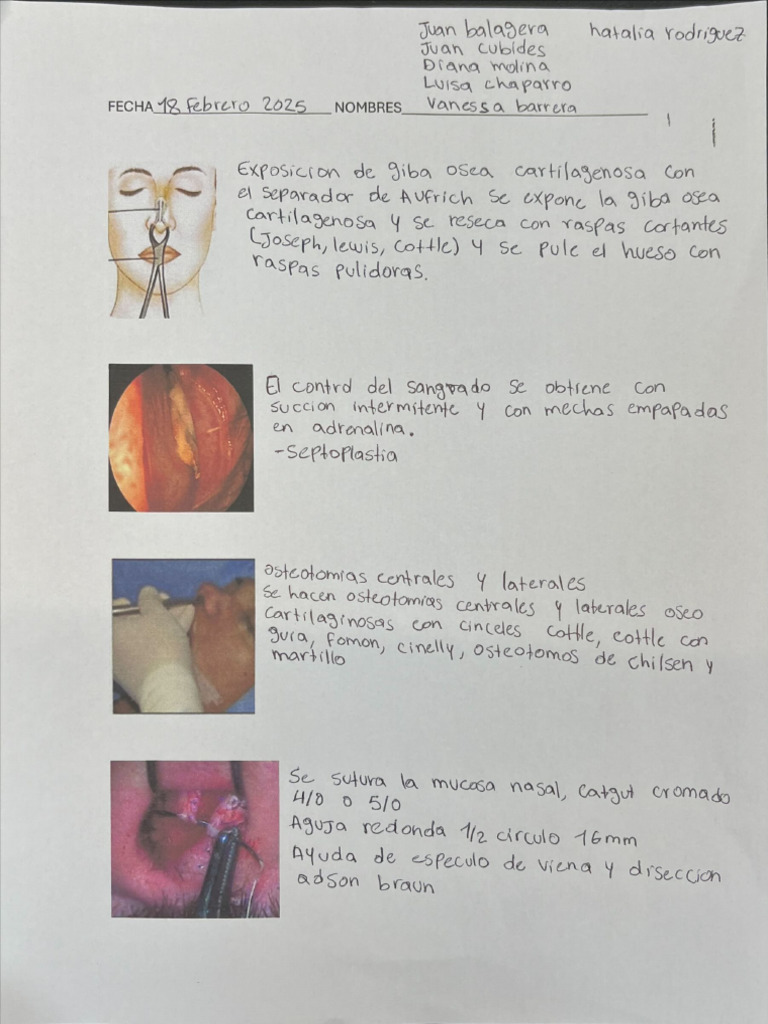 Juan balagera natalia rodriguez
Juan cubides
Diana molina
Luisa chaparro
FECHA 18 Febrero 2025 NOMBRES Vanessa barrera
Exposicion de giba osea cartilagenosa con
el separador de Aufrich se expone la giba osea
cartilagenosa y se reseca con raspas cortantes
(Joseph, lewis, cottle) y se pule el hueso con
raspas pulidoras.
El control del sangrado se obtiene con
succion intermitente y con mechas empapadas
en adrenalina.
-Septoplastia
Osteotomias centrales y laterales
Se hacen osteotomias centrales y laterales oseo
cartilaginosas con cinceles cottle, cottle con
guia, fomon, cinelly, osteotomos de chilsen y
martillo
Se sutura la mucosa nasal, catgut cromado
4/0 o 5/0
Aguja redonda 1/2 circulo 16mm
Ayuda de especulo de viena y diseccion
adson braun